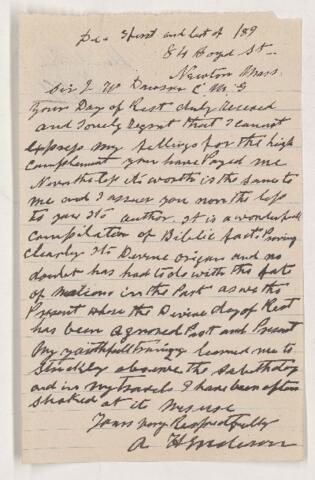 De- 31st and last of 189
84 Boyd St
Newton Mass.
Sir J. W Dawson C. M. G
Your Day of Rest duly received
and I only regret that I cannot
express my fellings for the high
complement you have payed me
Nevertheless its worth is the same to
me and I assure you non the less
to you its author. it is a wonderfull
Compilation of Biblic facts Proving
clearly Its Devine origen and no
doubt has had to do with the fate
of Nations in the Past as we the
Present whose the Devine day of Rest
has been ignored Past and Present
My youthfull training learned me to
Strickly observe the Sabathday
and in my travel I have been often
shoked at its misuse
Yours very Respectfully
A Henderson